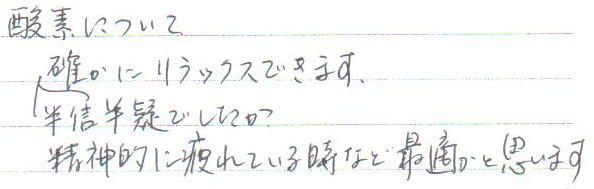 酸素について
確かにリラックスできます。
半信半疑でしたが
精神的に疲れている時など最適かと思います